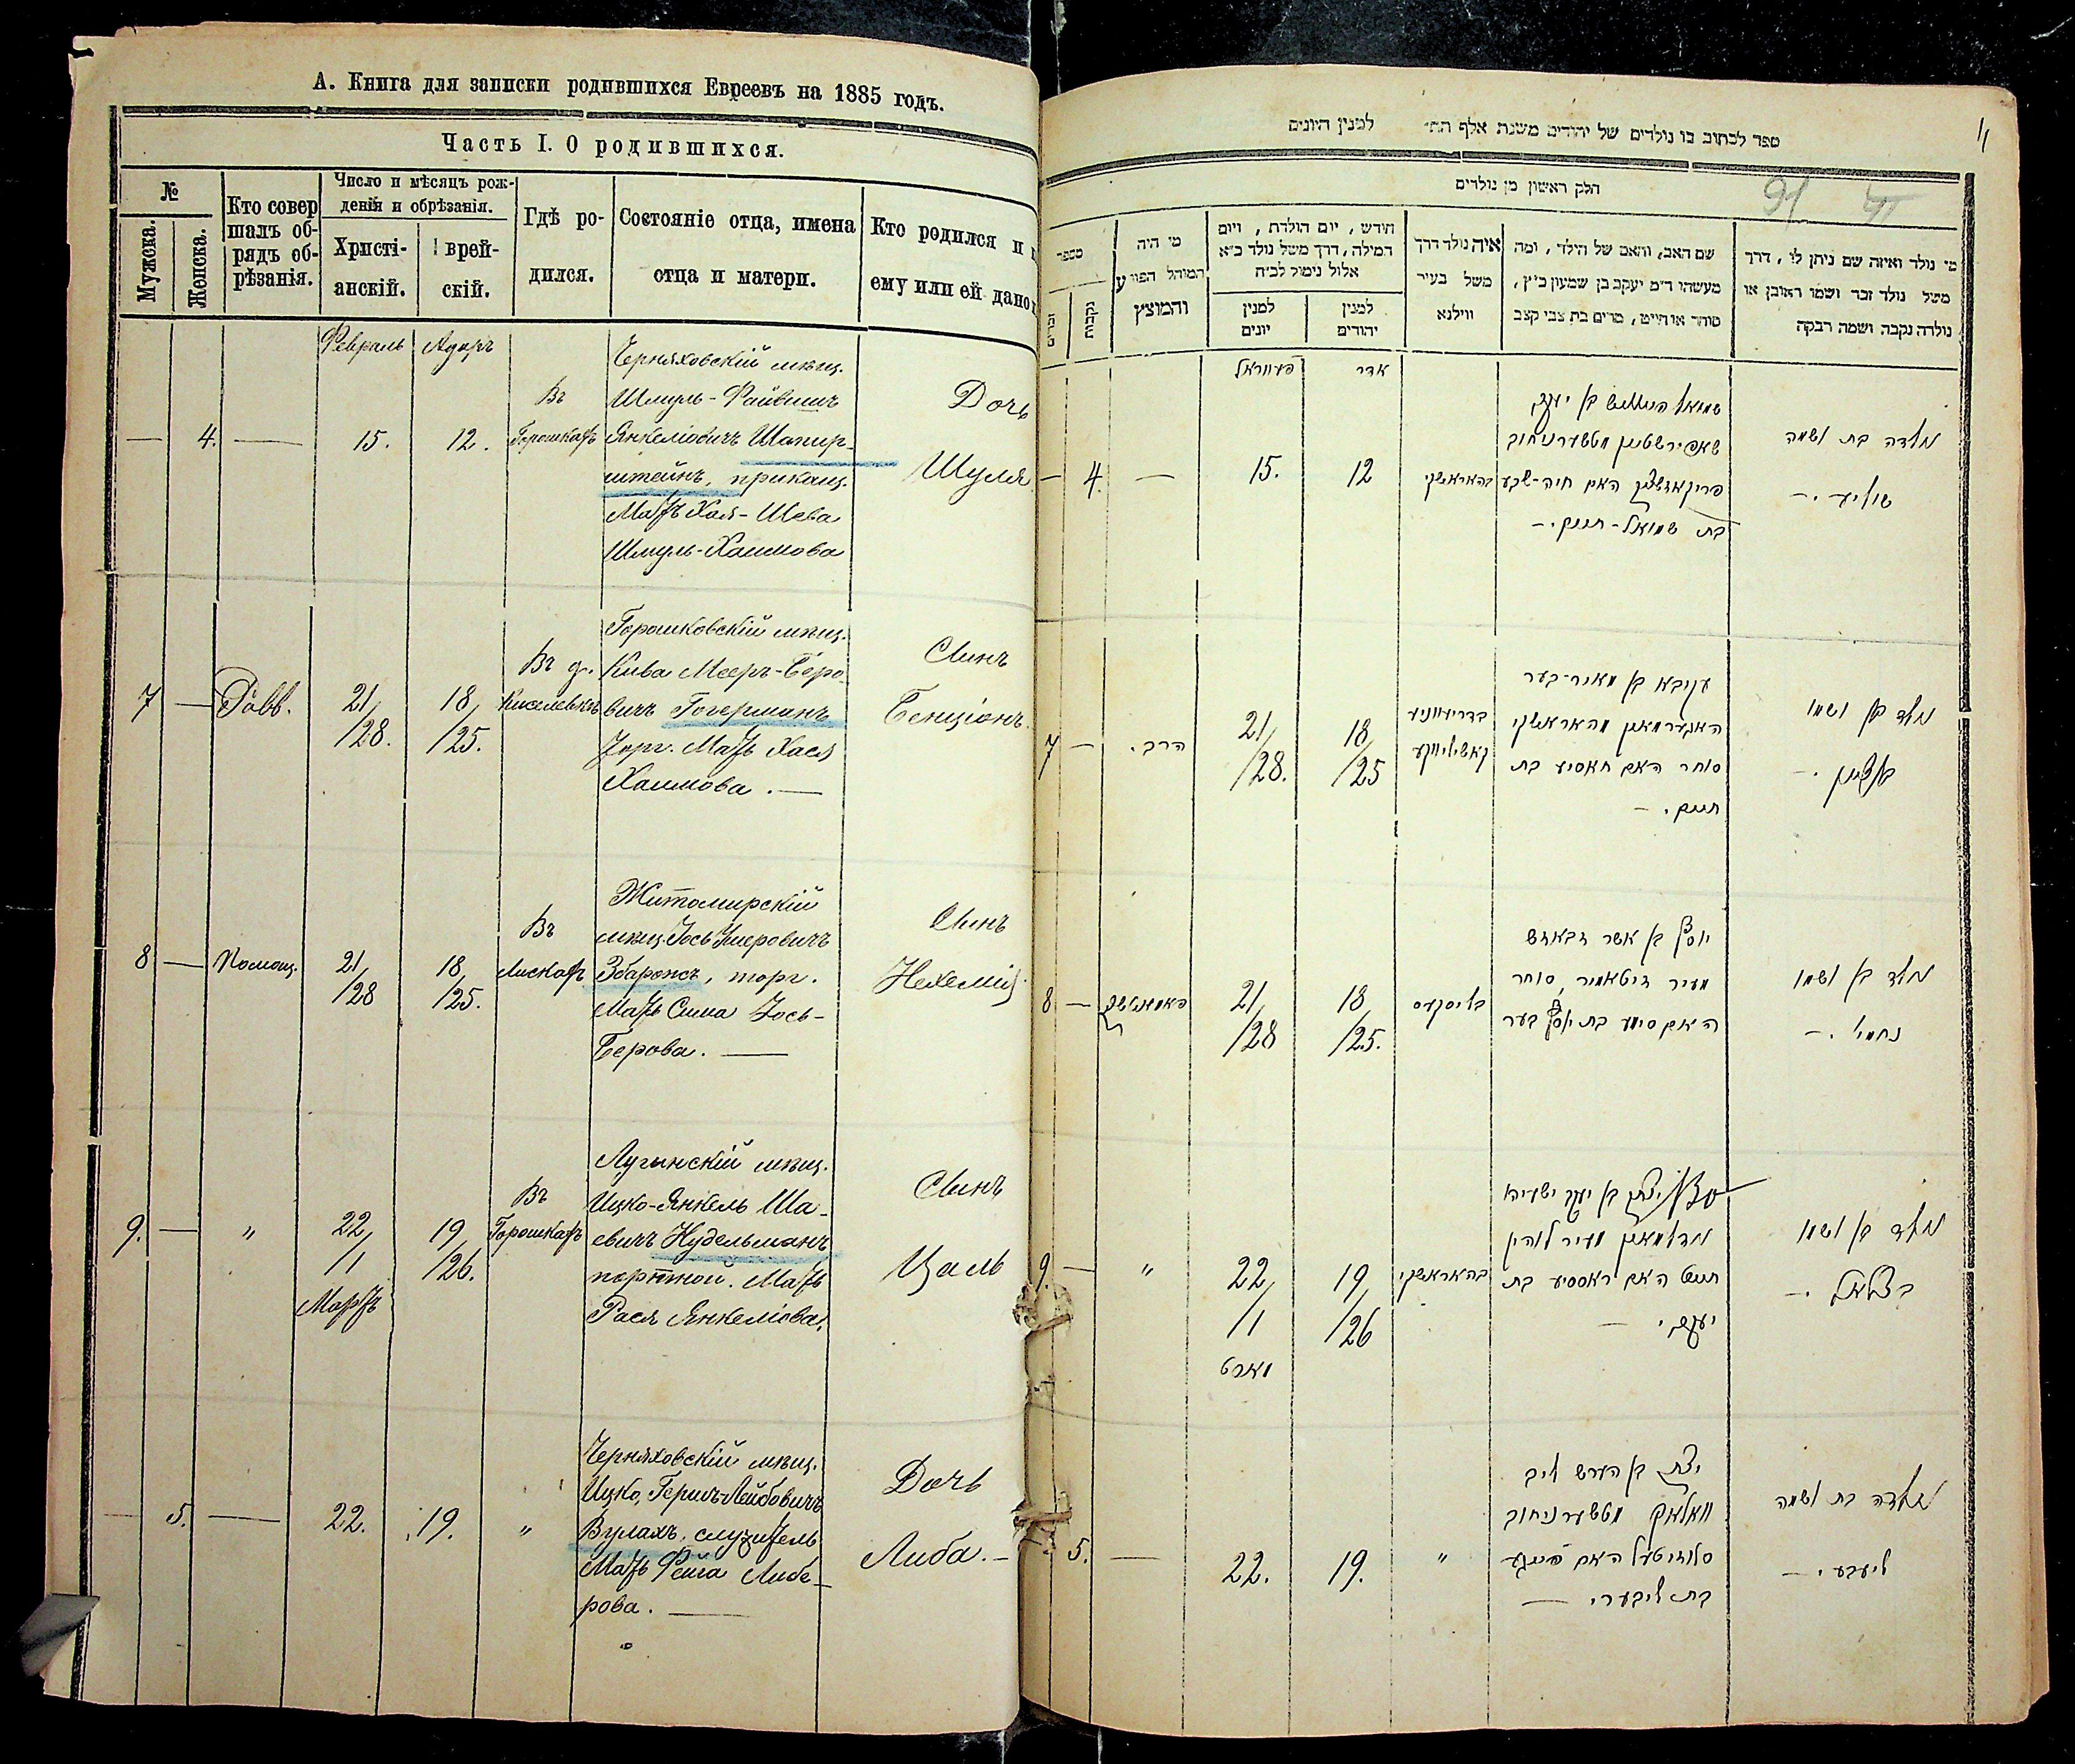 А. Книга для записки родившихся Евреевъ на 1885 годъ.
Часть I. О родившихся.
№
Мужска.
Женска.
Кто совер
шалъ об-
рядъ об-
рѣзанія.
Число и мѣсяцъ рож-
денія и обрѣзанія.
Христі-
анскій.
врей-
скій.
Гдѣ ро-
дился.
Состояніе отца, имена
отца и матери.
Кто родился и
ему или ей дано
Февраль Адаръ
— 4. — 15. 12.
Въ
Горошкахъ
Черняховскій мѣщ.
Шмуль-Файвишъ
Янкеліовичъ Шапир-
штейнъ, приказщ.
Мать Хая-Шева
Шмуль-Хаимова
Дочь
Шуля
7 — Равв. 21/28. 18/25.
Въ д.
Киселевкѣ
Горошковскій мѣщ.
Кива Мееръ-Беро-
вичъ Гогерманъ
торг. Мать Хася
Хаимова. —
Сынъ
Бенціонъ.
8 — Помощ. 21/28 18/25.
Въ
Лискахъ
Житомирскій
мѣщ. Іось Ушеровичъ
Збаражъ, торг.
Мать Сима Іось-
Берова. —
Сынъ
Нехемія
9. — " 22/1 19/26.
Мартъ
Въ
Горошкахъ
Лугынскій мѣщ.
Ицко-Янкель Ша-
евичъ Нудельманъ
портной. Мать
Рася Янкеліова.
Сынъ
Цаль
— 5. — 22. 19. "
Черняховскій мѣщ.
Ицко, Гершъ-Лейбовичъ
Вулахъ, служитель
Мать Фейга Либе-
рова. —
Дочь
Либа. —
ספר לכתוב בו נולדים של יהודים משנת אלף תת״ למנין היונים
11
חלק ראשון מן נולדים
91
מספר
זכרים
נקבות
מי היה
המוהל הפורע
והמוצץ
חודש, יום הולדת, ויום
המילה, דרך משל נולד כ״א
אלול נימול לכ״ח
למנין
יונים
למנין
יהודים
איה נולד דרך
משל בעיר
ווילנא
שם האב, והאם של הילד, ומה
מעשהו ד״מ יעקב בן שמעון כ״ץ,
סוחר או חייט, מרים בת צבי קצב
מי נולד ואיזה שם ניתן לו, דרך
משל נולד זכר ושמו ראובן או
נולדה נקבה ושמה רבקה
פעווראל אדר
— 4. — 15. 12
בהאראשקי
שמואל פייוויש בן יעקב
שאפירשטיין מטשערניחוב
פריקאזשציק האם חיה-שבע
בת שמואל-חיים. —
נולדה בת ושמה
שוליע. —
7 — הרב. 21/28. 18/25
בדריעווניע
קאשילייווקע
עקיבא בן מאיר-בער
האגערמאן מהאראשקי
סוחר האם חאסיע בת
חיים. —
נולד בן ושמו
בן ציון. —
8 — פאמאצניק 21/28 18/25.
בליסקעס
יוסף בן אשר זבאראש
מעיר זיטאמיר, סוחר
האם סימע בת יוסף בער
נולד בן ושמו
נחמיה. —
9. — " 22/1 19/26
מארט
בהאראשקי
יצחק בן יעקב ישעיהו
נודלמאן מעיר לוהין
חייט האם ראססיע בת
יעקב. —
נולד בן ושמו
בצלאל. —
5. — 22. 19. "
יצחק בן הערש ליב
וואלאק מטשערניחוב
סלוזיטעל האם פייגע
בת ליבערי —
נולדה בת ושמה
ליבע. —